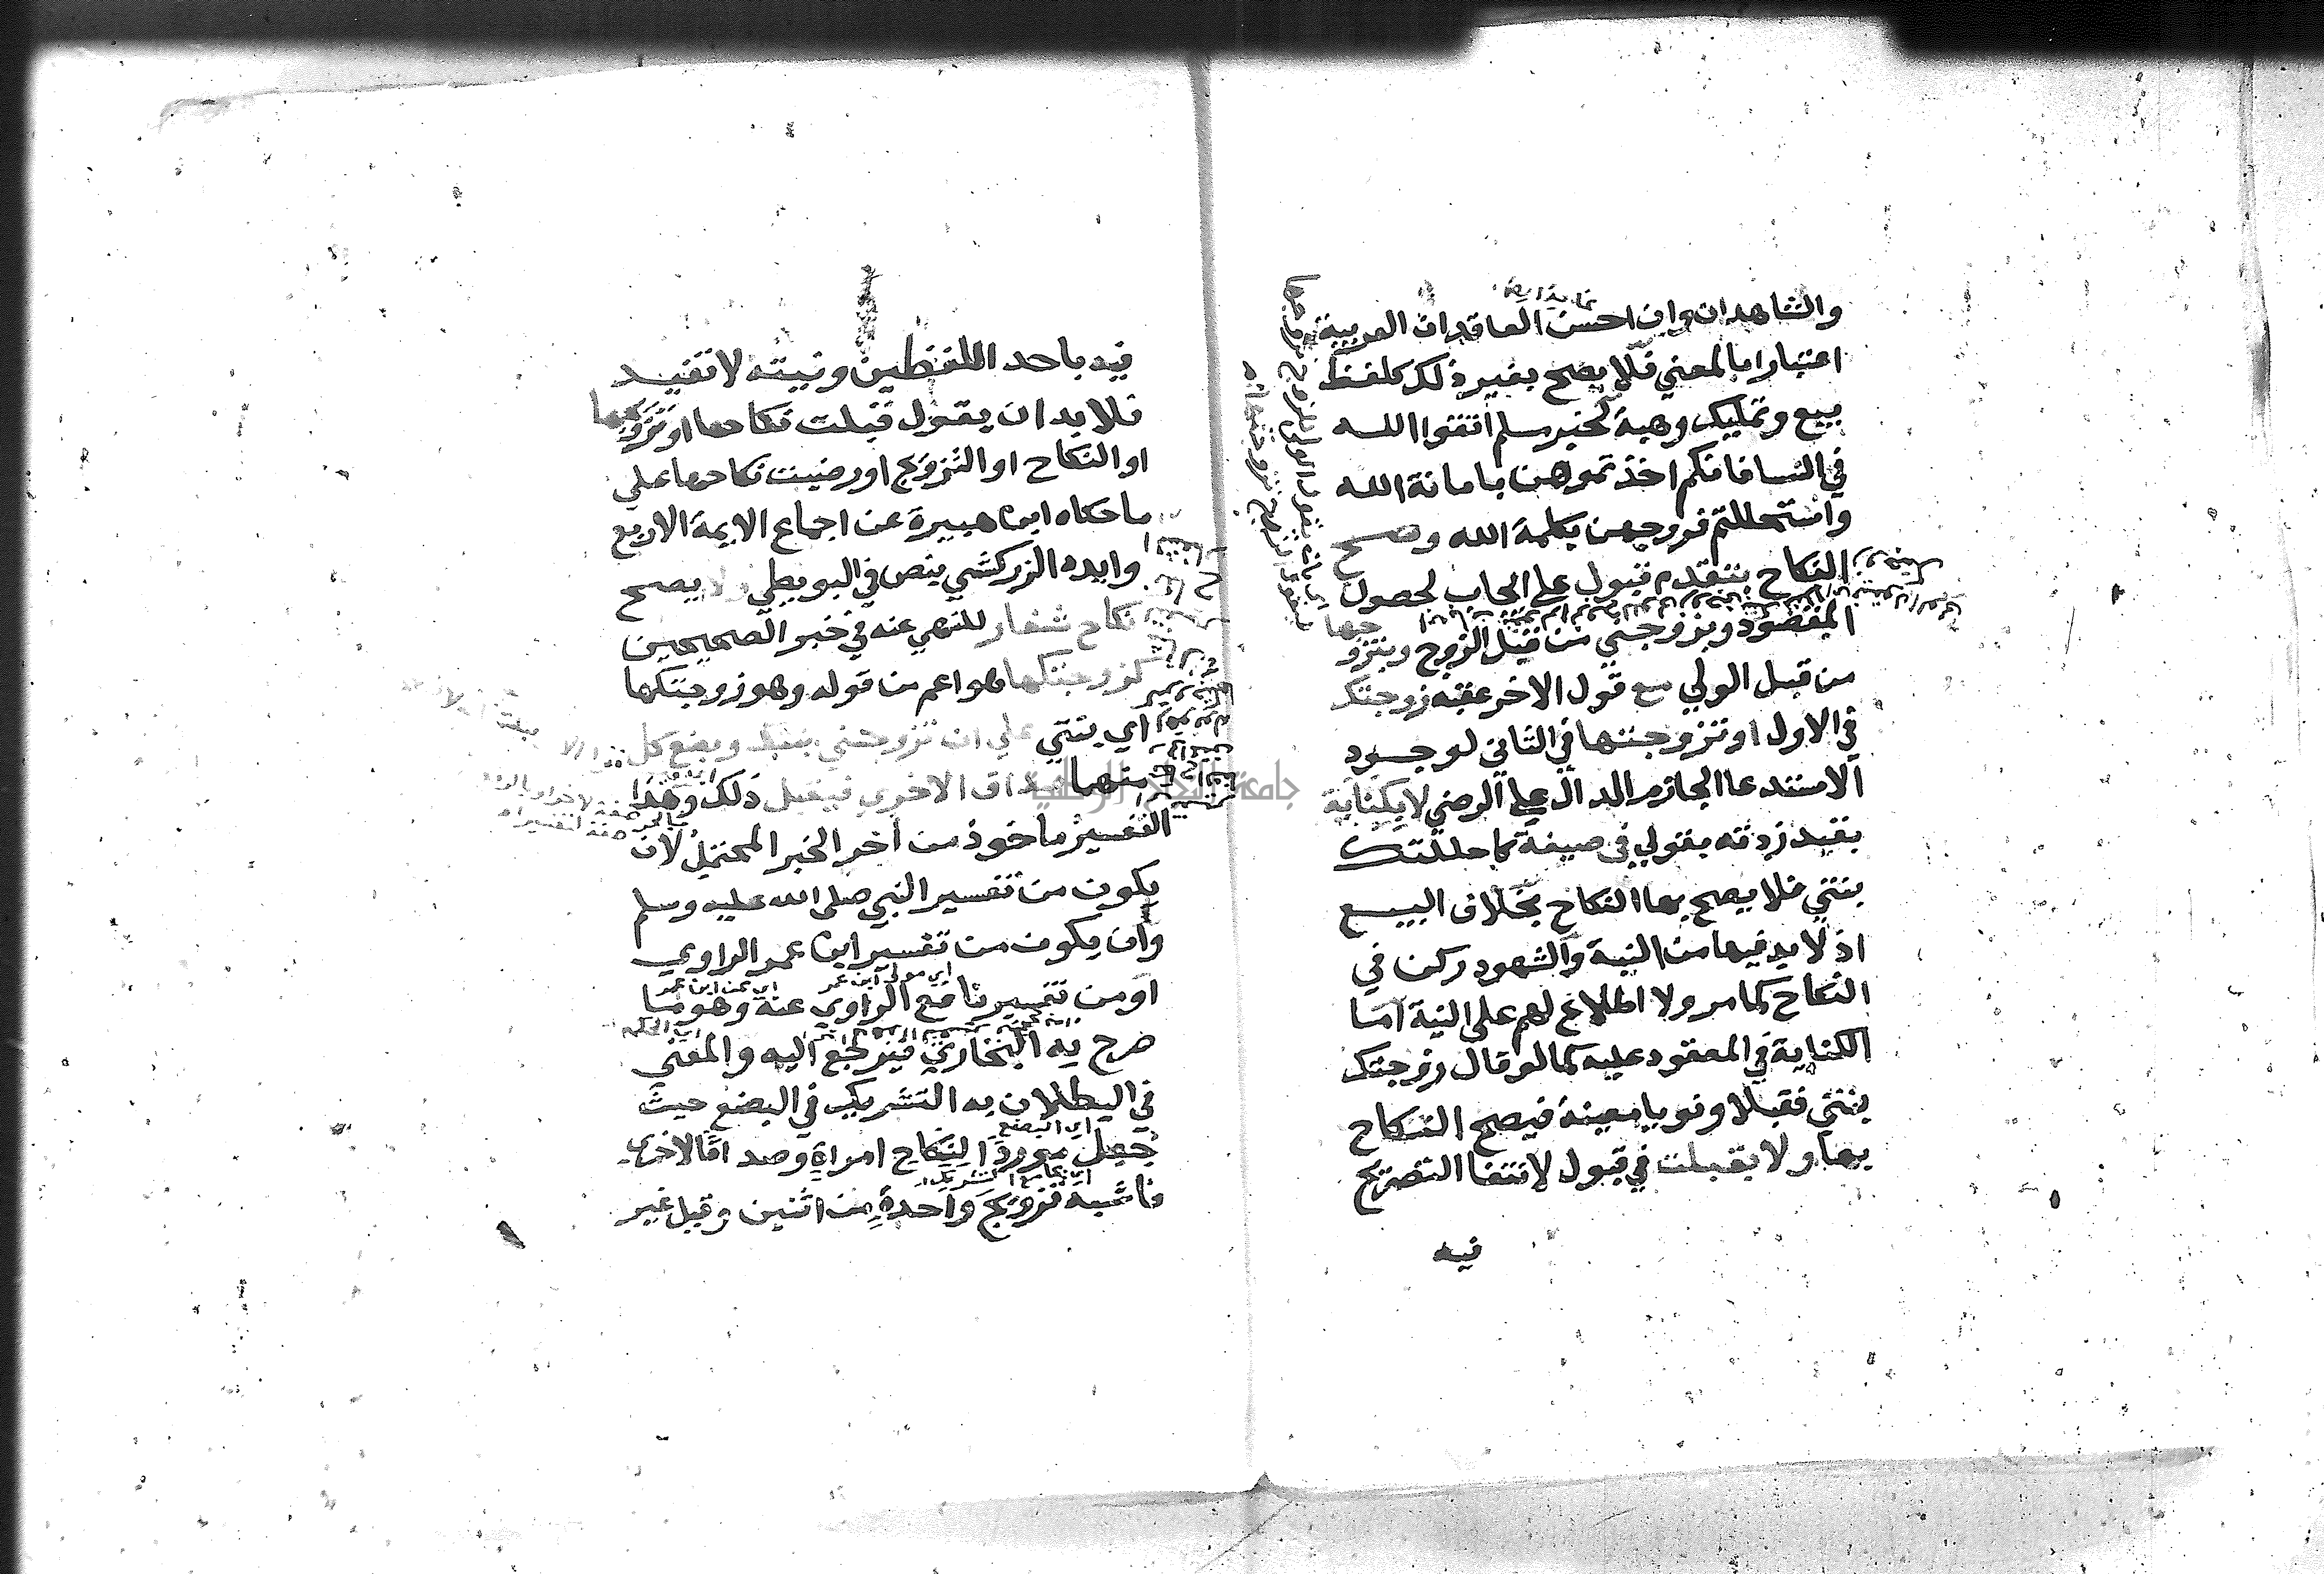 والشاهدان وان احسن العاقدان العربية
اعتبارا بالمعني فلا يصح بغير ذلك كلفظ
بيع وتمليك وهبة لخبر مسلم اتقوا الله
في النسا فانكم اخذتموهن بامانة الله
واستحللتم فروجهن بكلمة الله وصح
النكاح بتقدم قبول علي ايجاب لحصول
المقصود وبزوجني من قبل الزوج وبتزو
جها
من قبل الولي مع قول الاخر عقبه زوجتك
في الاول او تزوجتها في الثاني لوجود
الاستدعا الجازم الدال علي الرضي لا بكناية
بقيد زدته بقولي في صيغة كاحللتك
بنتي فلا يصح بها النكاح بخلاف البيع
اذ لا بد فيها من النية والشهود ركن في
النكاح كما مر ولا اطلاع لهم علي النية اما
الكناية في المعقود عليه كما لو قال زوجتك
بنتي فقبلا ونويا معينة فيصح النكاح
بها ولا بقبلت في قبول لانتفا التصريح
فيه
فيه باحد اللفظين ونيته لا تفيد
فلا بد ان يقول قبلت نكاحها او تزويجها
او النكاح او التزويج او رضيت نكاحها علي
ما حكاه ابن هبيرة عن اجماع الايمة الاربع
وايده الزركشي بنص في البويطي ولا يصح
نكاح شغار للنهي عنه في خبر الصحيحين
كزوجتكها هو اعم من قوله وهو زوجتكها
اي بنتي علي ان تزوجني بنتك وبضع كل
منهما صداق الاخري فيقبل ذلك وهذا
التفسير ماخوذ من اخر الخبر المحتمل لان
يكون من تفسير النبي صلي الله عليه وسلم
وان يكون من تفسير ابن عمر الراوي
اي مولي ابن عمر اي عن ابن عمر
او من تفسير نافع الراوي عنه وهو ما
صرح به البخاري فيرجع اليه والمعني
في البطلان به التشريك في البضع حيث
اي البضع
جعل مورد النكاح امراة وصداقا لاخري
اي بجامع التشريك
فاشبه تزويج واحدة من اثنين وقيل غير